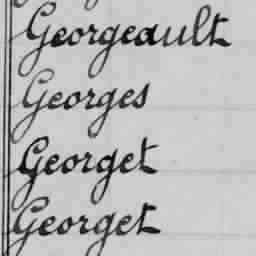 Georgeault
Georges
Georget
Georget